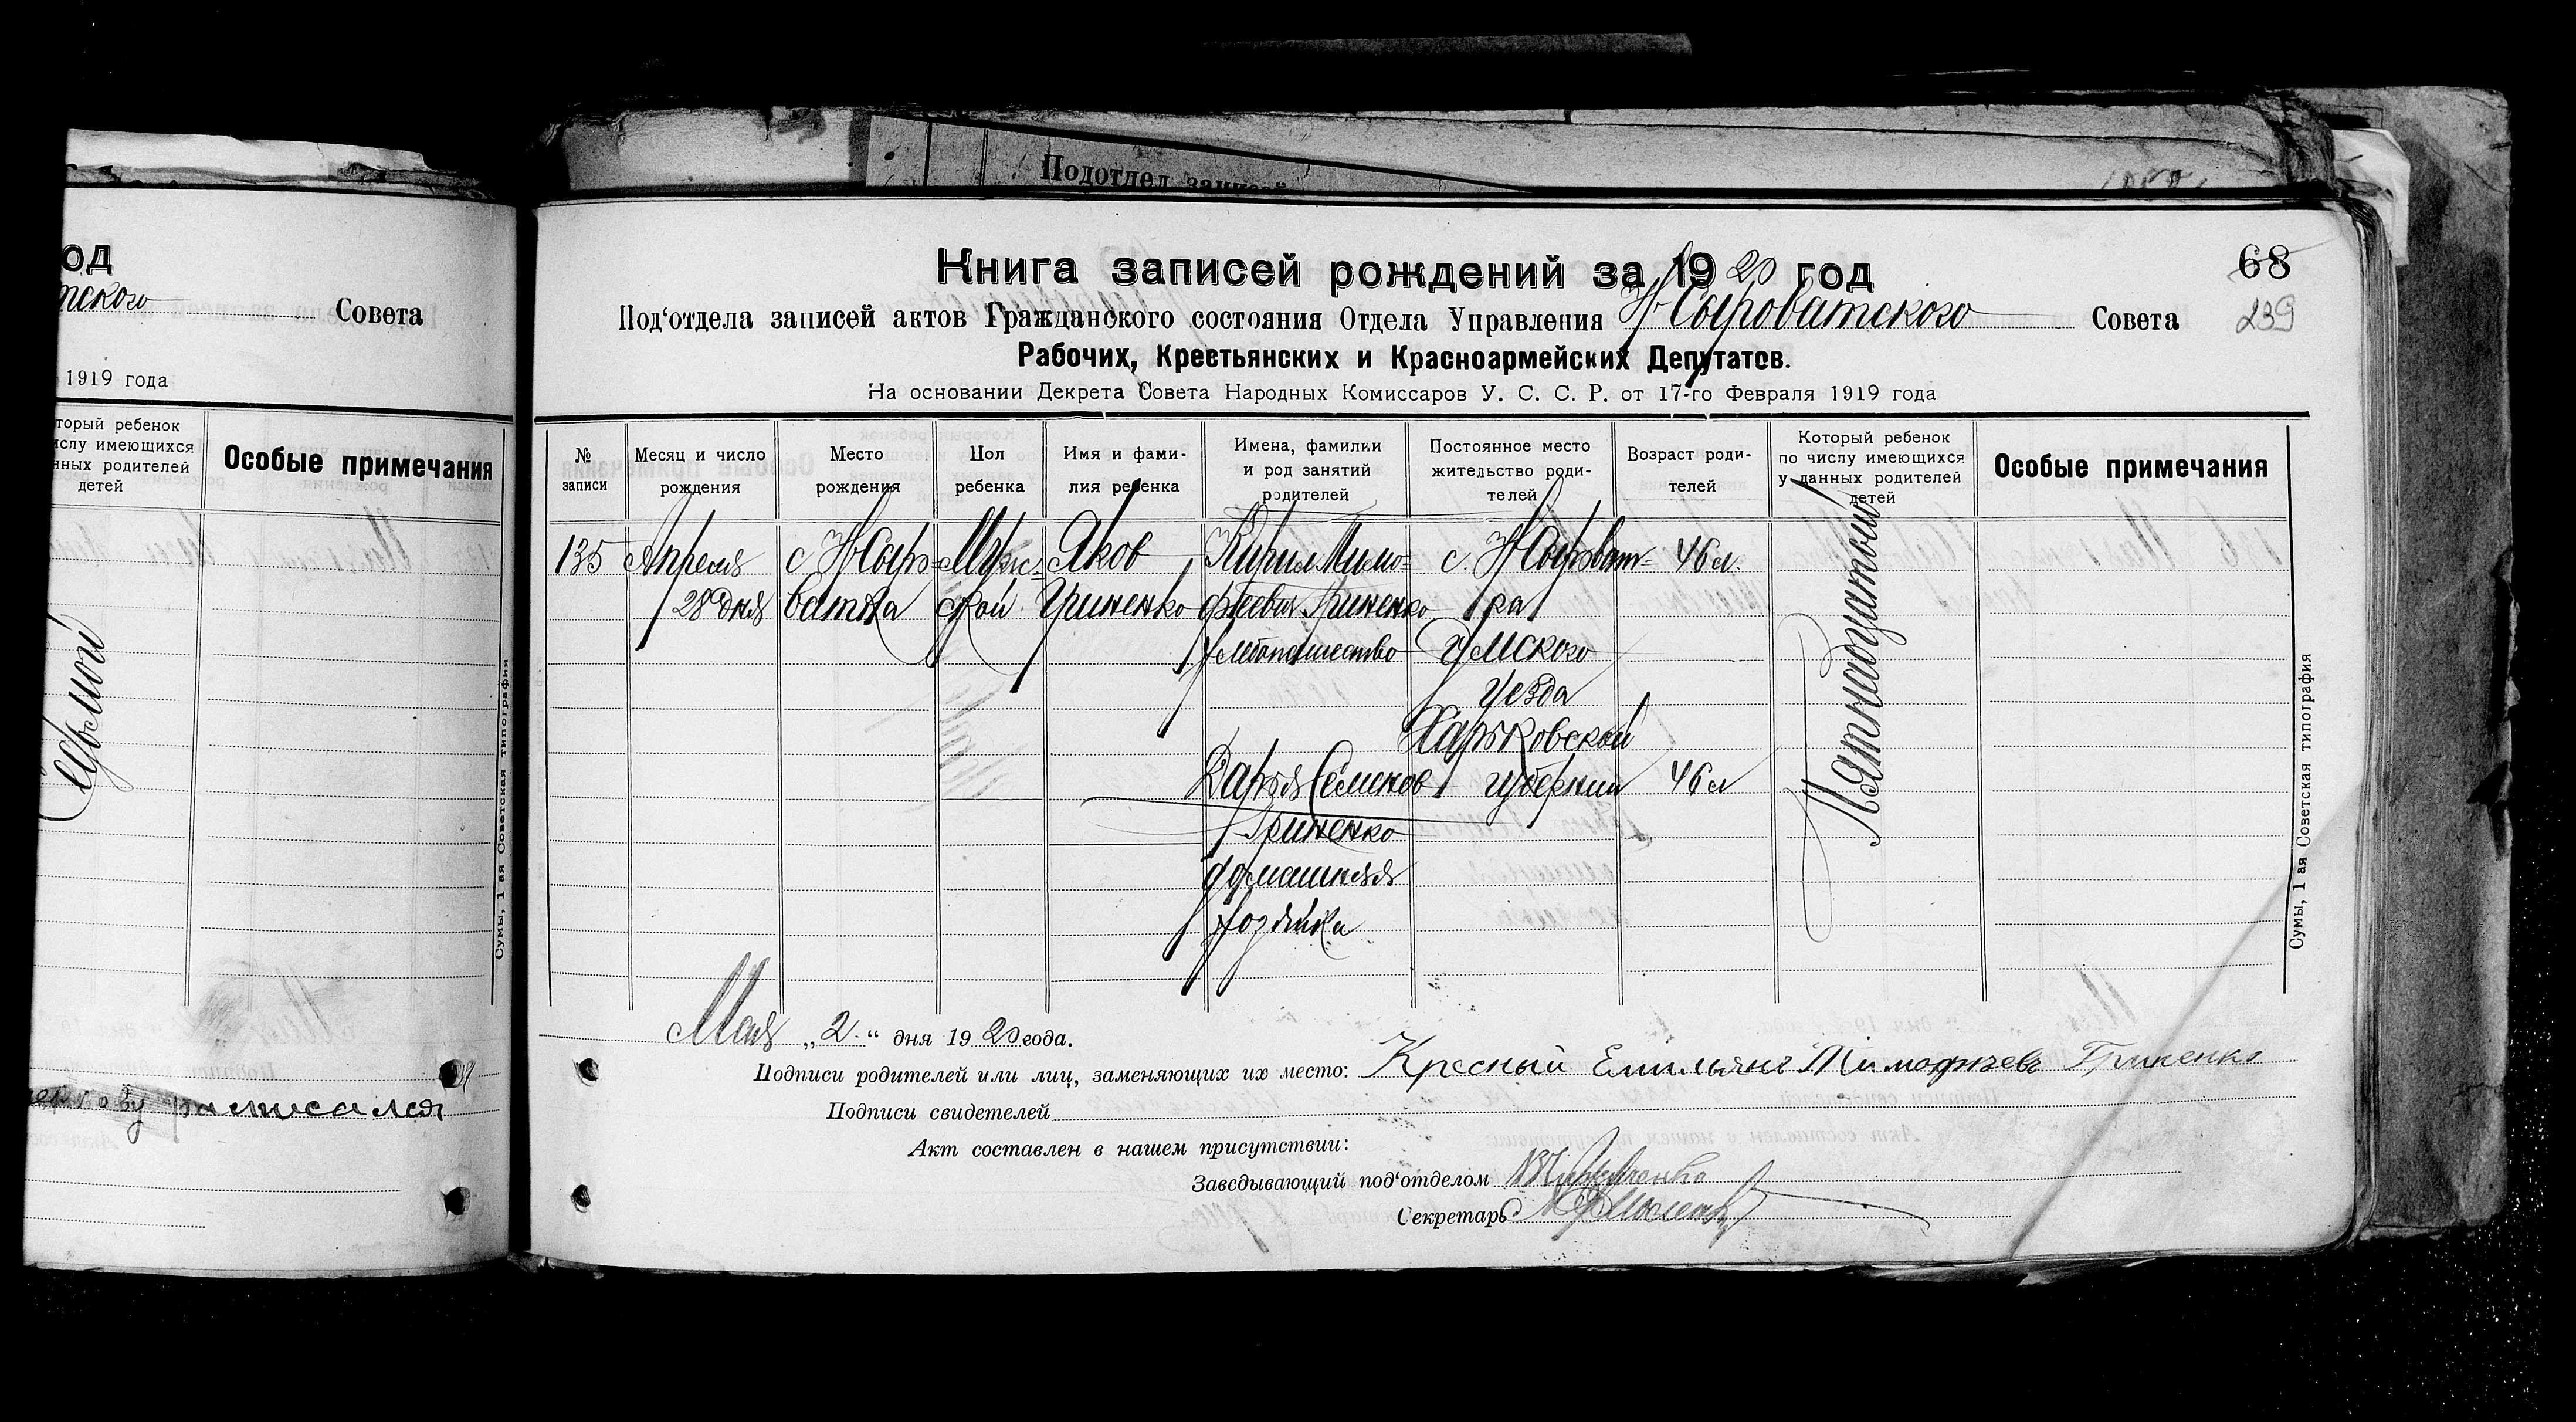 Подотдел записей
од
тского Совета
1919 года
торый ребенок
ислу имеющихся
нных родителей
детей
Особые примечания
Седьмой
Сумы, 1 ая Советская типография
росписался
Книга записей рождений за 1920 год
68
Под'отдела записей актов Гражданского состояния Отдела Управления Н-Сыроватского Совета
239
Рабочих, Крестьянских и Красноармейских Депутатов.
На основании Декрета Совета Народных Комиссаров У. С. С. Р. от 17-го Февраля 1919 года
№ записи
Месяц и число рождения
Место рождения
Пол ребенка
Имя и фами-
лия ребенка
Имена, фамилии
и род занятий
родителей
Постоянное место
жительство роди-
телей
Возраст роди-
телей
Который ребенок
по числу имеющихся
у данных родителей
детей
Особые примечания
135
Апреля
28 дня
с Н Сыро-
ватка
Мужс-
кой
Яков
Гриненко
Кирил Тимо-
феевич Гриненко
хлебопашество
Дарья Семенов
Гриненко
домашняя
хозяйка
с. Н Сыроват-
ка
Сумского
уезда
Харьковской
губернии
46 л.
46 л
Пятнадцатый
Сумы, 1 ая Советская типография
Мая „2“ дня 1920 года.
Подписи родителей или лиц, заменяющих их место: Кресный Емильянъ Тимофиевъ Гриненко
Подписи свидетелей
Акт составлен в нашем присутствии:
Заведывающий под'отделом
Секретарь